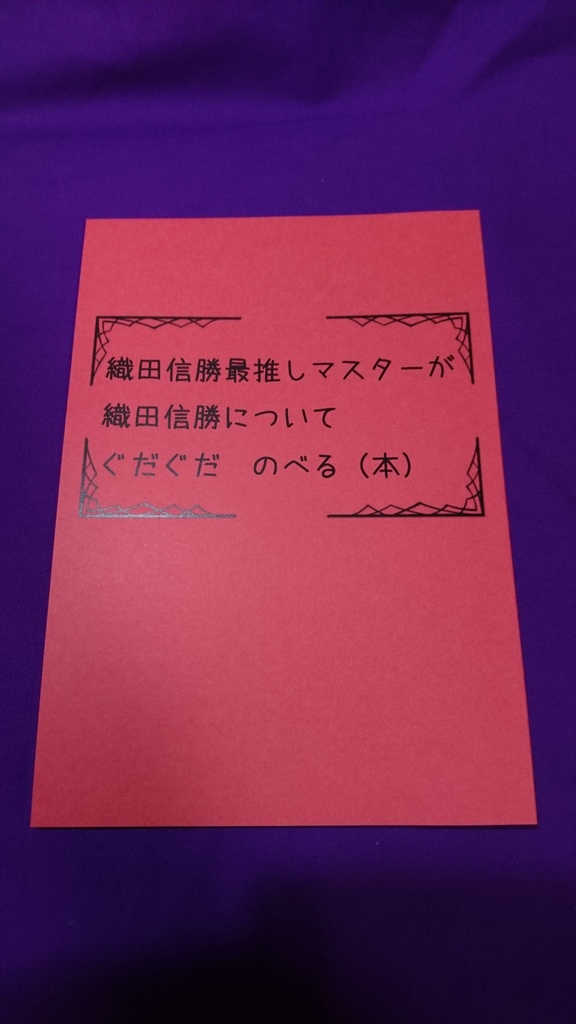 織田信勝最推しマスターが
織田信勝について
ぐだぐだ　のべる（本）